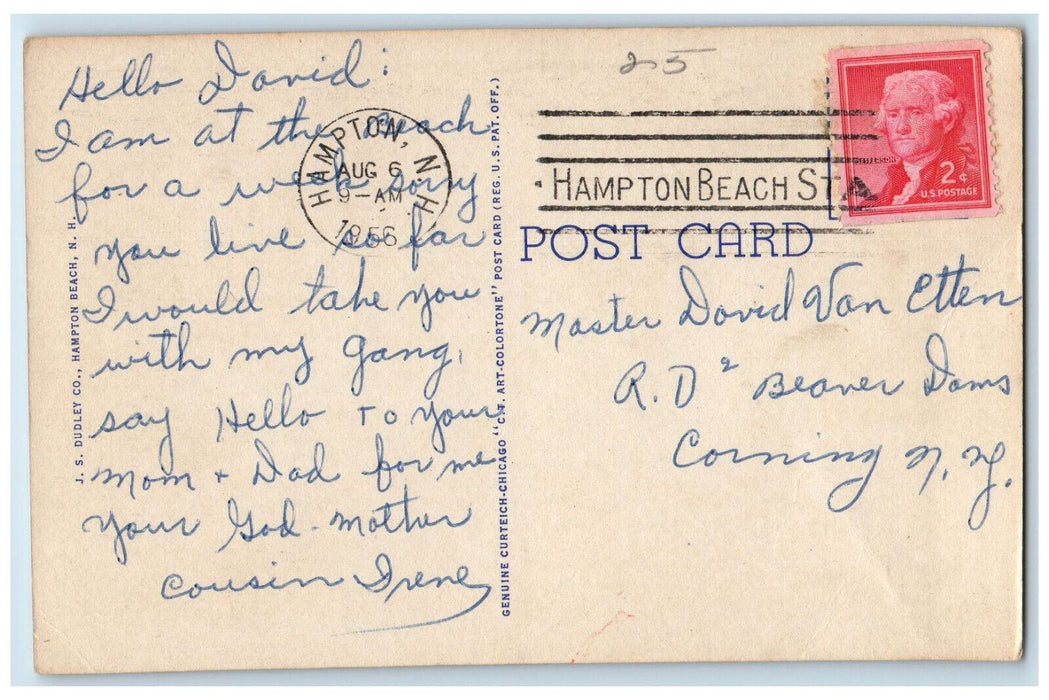 Hello David:
I am at the Beach
for a week sorry
you live so far
I would take you
with my gang,
say Hello to your
Mom + Dad for me
your God-mother
Cousin Irene
J. S. DUDLEY CO., HAMPTON BEACH, N. H.
GENUINE CURTEICH-CHICAGO "C.T. ART-COLORTONE" POST CARD (REG. U.S. PAT. OFF.)
25
HAMPTON, N.H.
AUG 6
9-AM
1956
HAMPTON BEACH ST
JEFFERSON
2¢
U.S. POSTAGE
POST CARD
Master David Van Etten
R.D 2 Beaver Dams
Corning N.Y.